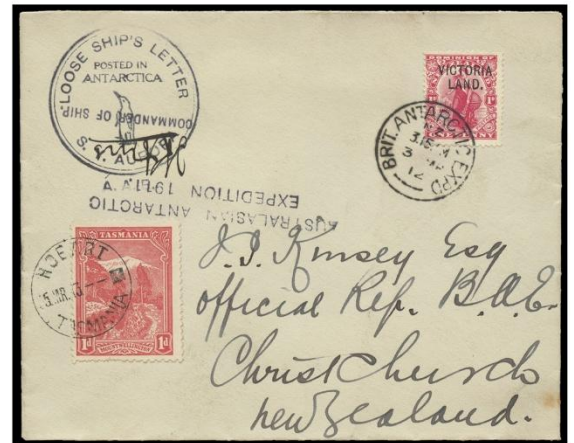 LOOSE SHIP'S LETTER
POSTED IN
ANTARCTICA
COMMANDER OF SHIP
S. Y. AURORA
AUSTRALASIAN ANTARCTIC
EXPEDITION
VICTORIA
LAND.
BRIT. ANTARCTIC EXPD
TASMANIA
1d
1d
HOBART
TASMANIA
J. J. Kinsey Esq
official Rep. B.A.E.
Christchurch
new Zealand.